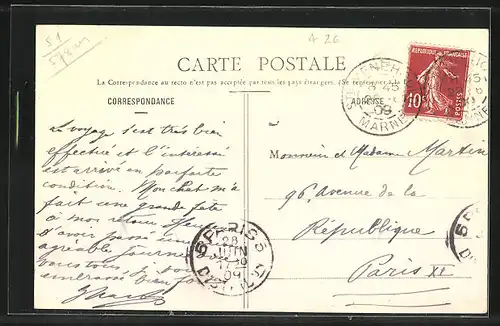 51
A 26
CARTE POSTALE
La Correspondance au recto n'est pas acceptée par tous les pays étrangers. (Se renseigner
CORRESPONDANCE
ADRESSE
REPUBLIQUE FRANCAISE
10
POSTES
MARNE
09
Le voyage s'est très bien
effectué et l'intéressé
est arrivé en parfaite
condition. Mon chat m'a
fait une grande fête
à mon retour
d'avoir passé une
agréable journée
vous tous, je vous
embrasse bien
Monsieur et Madame Martin
96, Avenue de la
République
Paris XI
PARIS 5
28
JUIN
09